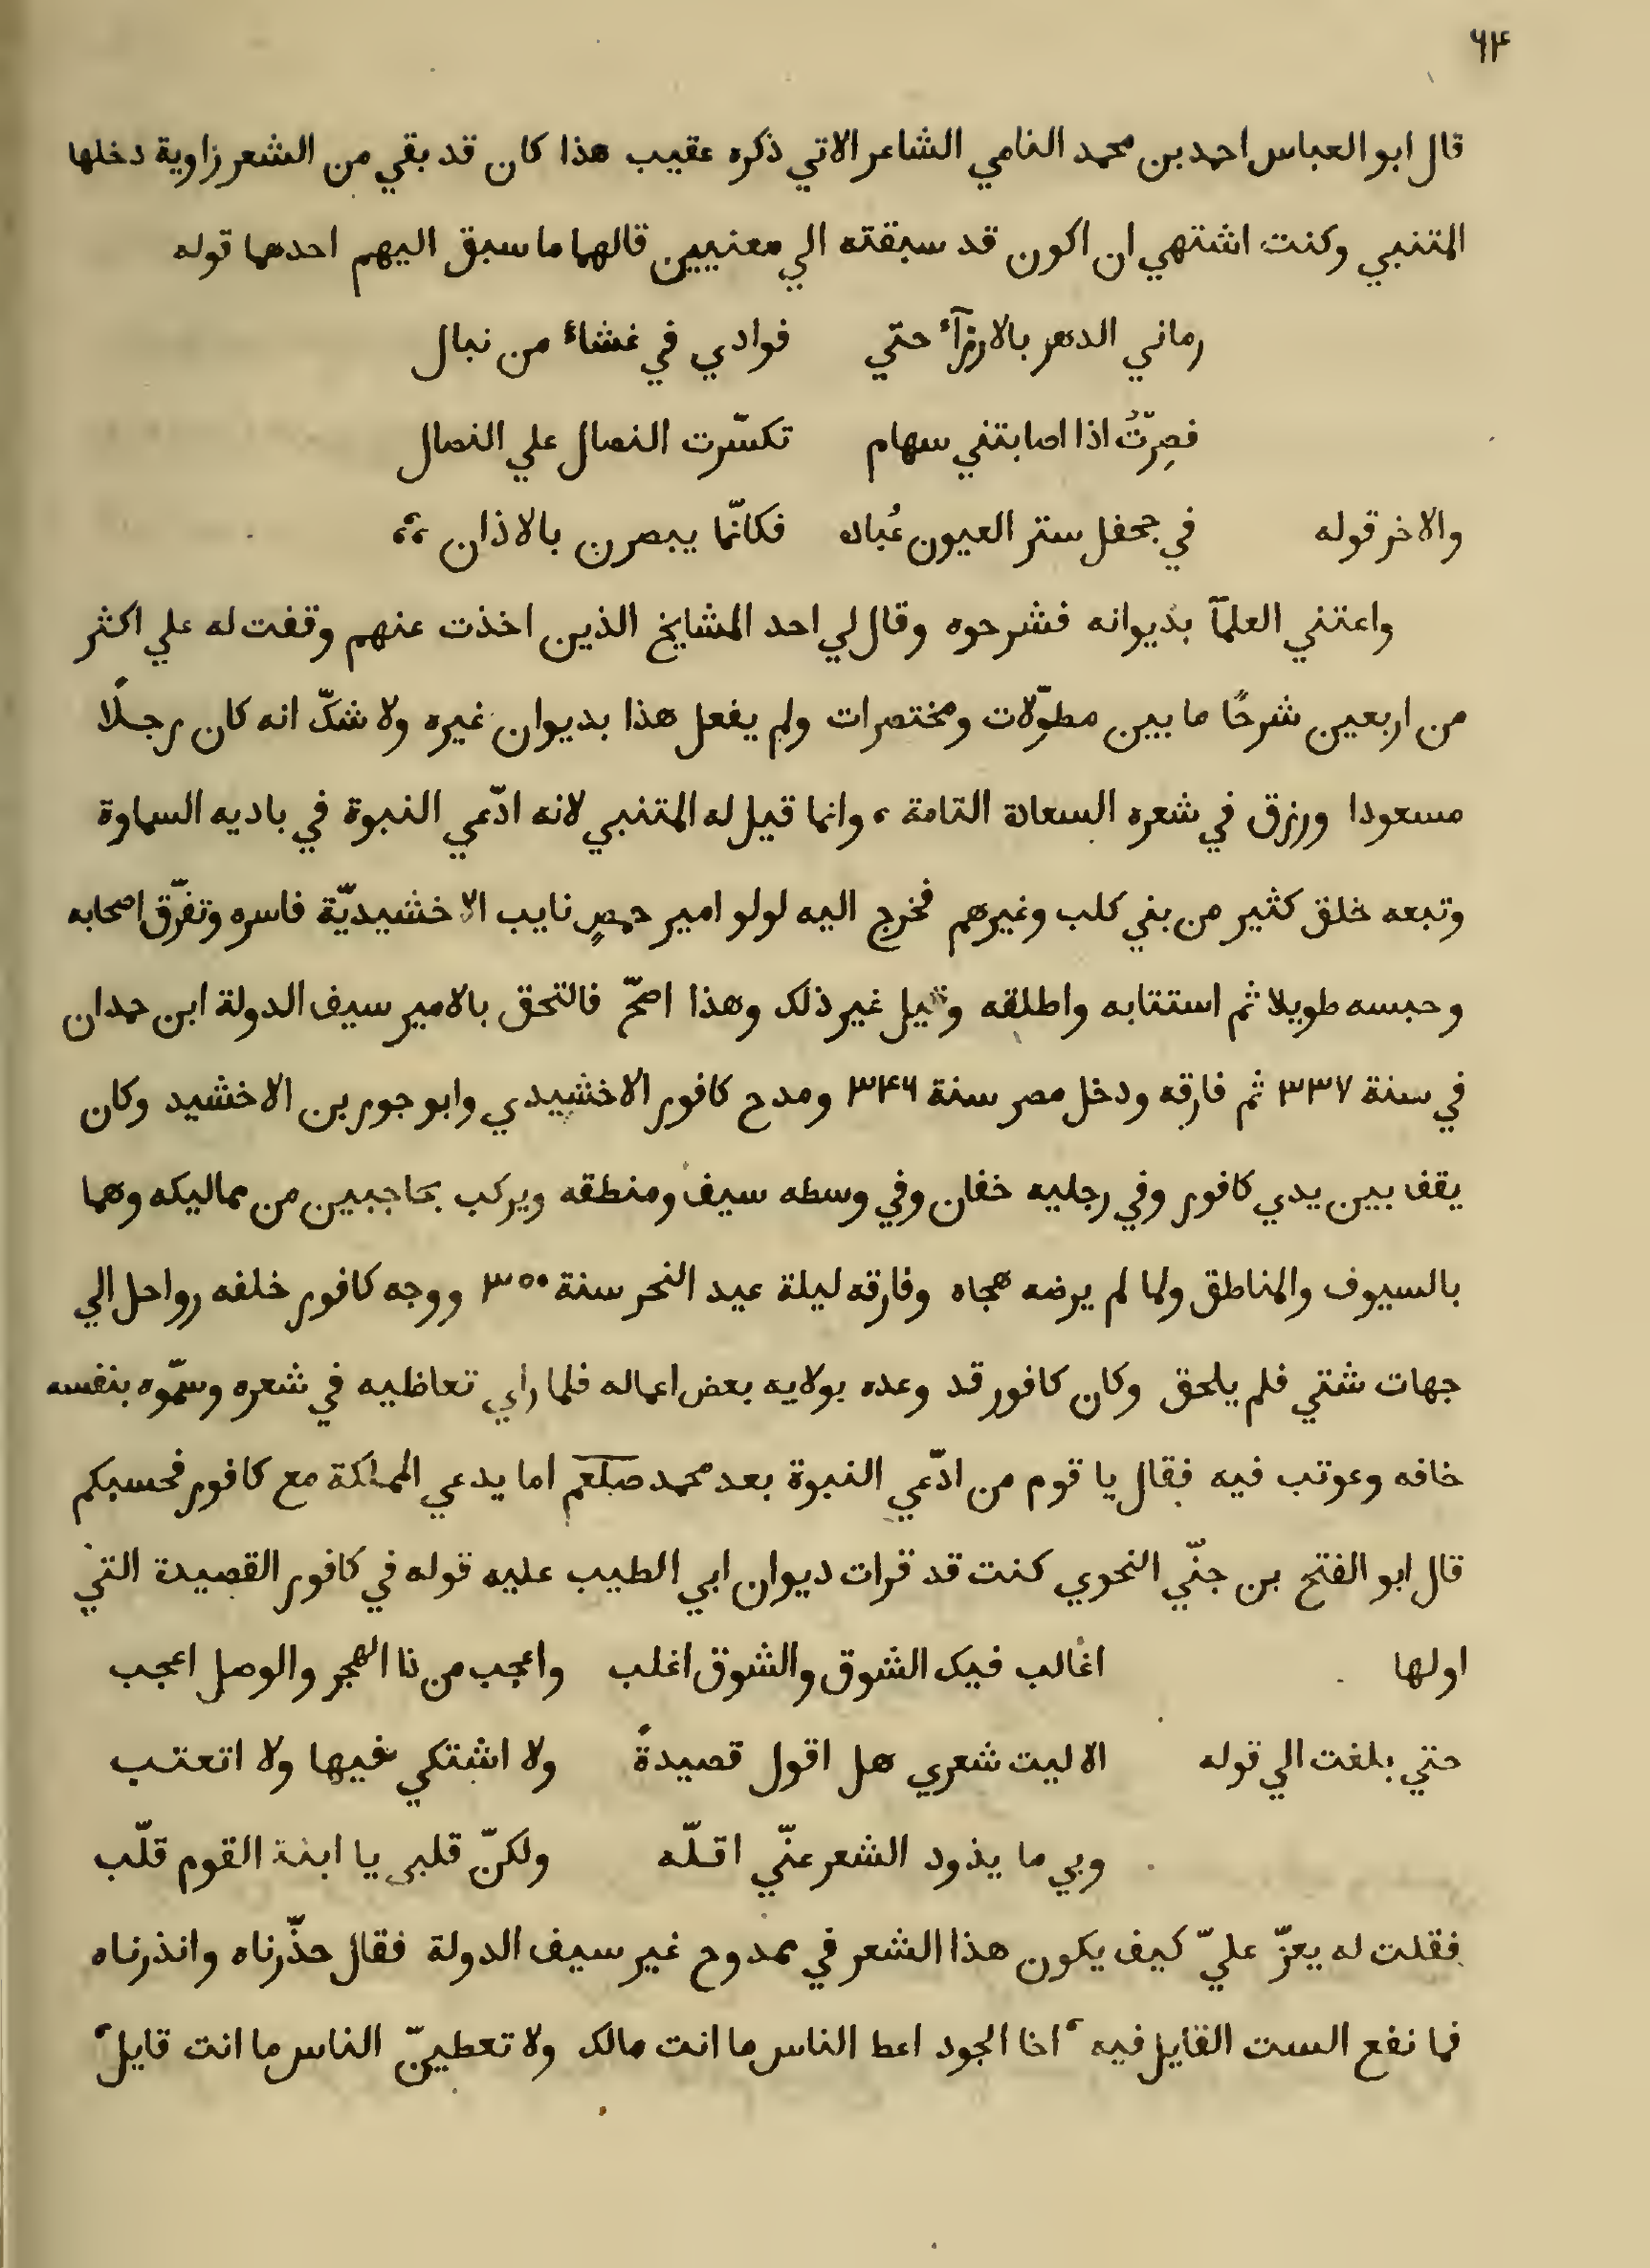 ٦٤
قال ابو العباس احمد بن محمد النامي الشاعر الاتي ذكره عقيب هذا كان قد بقي من الشعر زاوية دخلها
المتنبي وكنت اشتهي ان اكون قد سبقته الي معنيين قالهما ما سبق اليهم احدهما قوله
رماني الدهر بالارزآء حتي فوادي في غشاء من نبال
فصِرّتُ اذا اصابتني سهام تكسّرت النصال علي النصال
والاخر قوله في جحفل ستر العيون غُباره فكانّما يبصرن بالاذان
واعتني العلمآ بديوانه فشرحوه وقال لي احد المشايخ الذين اخذت عنهم وقفت له علي اكثر
من اربعين شرحًا ما بين مطوّلات ومختصرات ولم يفعل هذا بديوان غيره ولا شكّ انه كان رجلًا
مسعودا ورزق في شعره السعادة التامة ، وانما قيل له المتنبي لانه ادّعي النبوة في باديه السماوة
وتبعه خلق كثير من بني كلب وغيرهم فخرج اليه لولو امير حمصٍ نايب الاخشيديّة فاسره وتفرّق اصحابه
وحبسه طويلا ثم استتابه واطلقه وقيل غير ذلك وهذا اصحّ فالتحق بالامير سيف الدولة ابن حمدان
في سنة ٣٣٧ ثم فارقه ودخل مصر سنة ٣٤٦ ومدح كافور الاخشيدي وابو جور بن الاخشيد وكان
يقف بين يدي كافور وفي رجليه خفان وفي وسطه سيف ومنطقه ويركب بحاجبين من مماليكه وهما
بالسيوف والمناطق ولما لم يرضه هجاه وفارقه ليلة عيد النحر سنة ٣٥٠ ووجه كافور خلفه رواحل الي
جهات شتي فلم يلحق وكان كافور قد وعده بولايه بعض اعماله فلما راي تعاظيه في شعره وسمّوه بنفسه
خافه وعوتب فيه فقال يا قوم من ادّعي النبوة بعد محمد صلعم اما يدعي المملكة مع كافور فحسبكم
قال ابو الفتح بن جنّي النحوي كنت قد قرات ديوان ابي الطيب عليه قوله في كافور القصيدة التي
اولها اغالب فيك الشوق والشوق اغلب واعجب من ذا الهجر والوصل اعجب
حتي بلغت الي قوله الا ليت شعري هل اقول قصيدةً ولا اشتكي فيها ولا اتعتب
وبي ما يذود الشعر عنّي اقلّه ولكنّ قلبي يا ابنة القوم قلّب
فقلت له يعزّ عليّ كيف يكون هذا الشعر في ممدوح غير سيف الدولة فقال حذّرناه وانذرناه
فما نفع الست القايل فيه ، اخا الجود اعط الناس ما انت مالك ولا تعطينّ الناس ما انت قايل ،